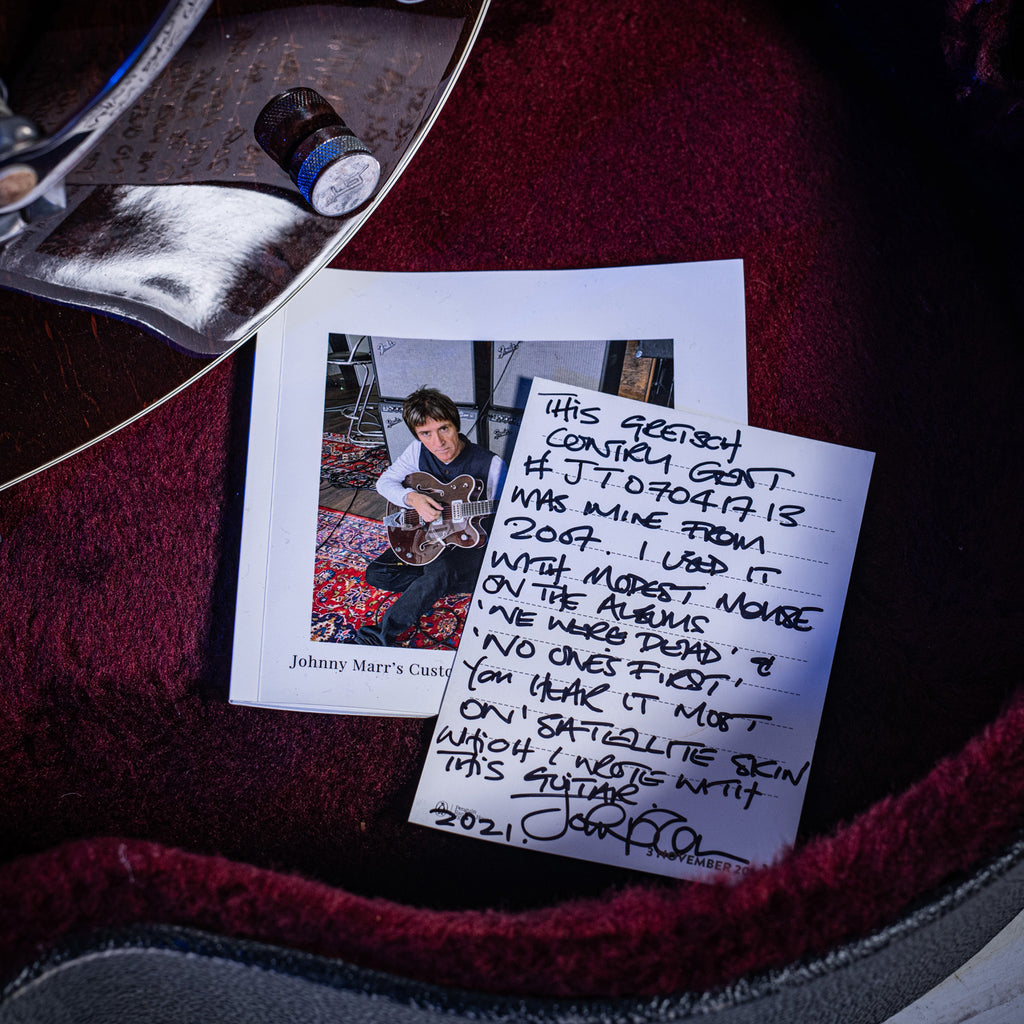 Johnny Marr's Custo
THIS GRETSCH
CONTRY GENT
# JT07041713
WAS MINE FROM
2007. I USED IT
WITH MODEST MOUSE
ON THE ALBUMS
'WE WERE DEAD' &
'NO ONES FIRST'
YOU HEAR IT MOST
ON 'SATELLITE SKIN
WHICH I WROTE WITH
THIS GUITAR.
2021.
3 NOVEMBER 20